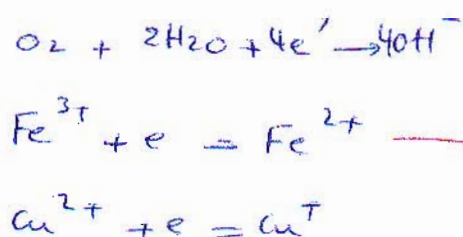 O₂ + 2H₂O + 4e' → 4OH⁻
Fe³⁺ + e = Fe²⁺
Cu²⁺ + e = Cu⁺